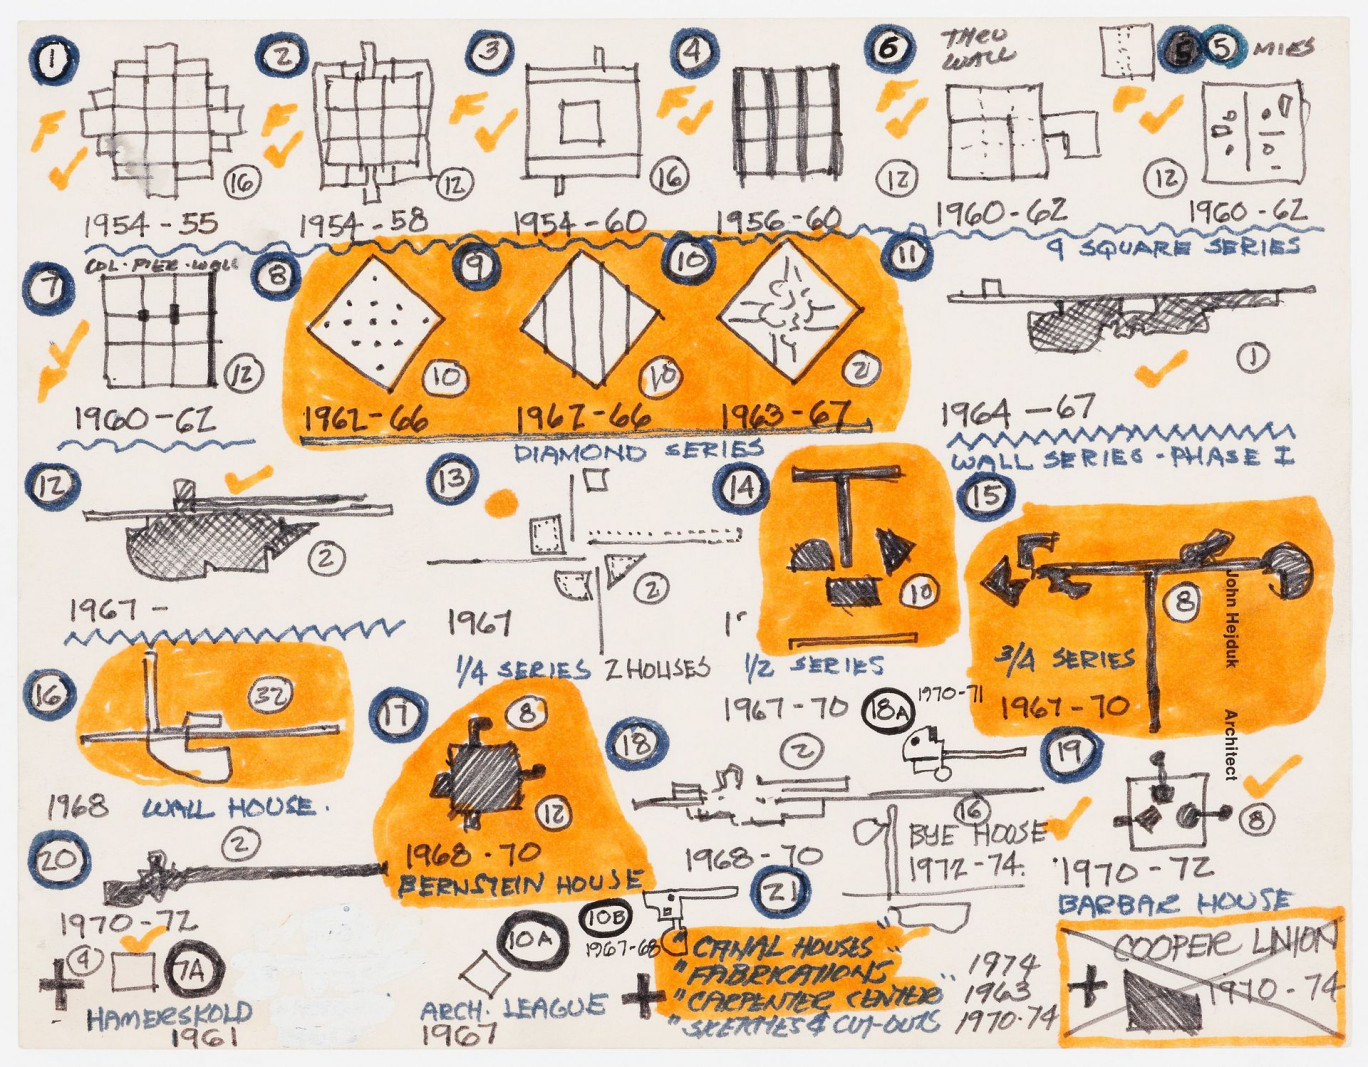 1
2
3
4
6
THRU
WALL
5
5
MIES
F
F
F
F
F
F
16
12
16
12
12
1954-55
1954-58
1954-60
1956-60
1960-62
1960-62
9 SQUARE SERIES
7
COL·PIER·WALL
8
9
10
11
F
12
10
10
2
1
1960-62
1962-66
1962-66
1963-67
1964-67
DIAMOND SERIES
WALL SERIES·PHASE I
12
13
14
15
2
2
10
8
1967-
1967
1/4 SERIES 2 HOUSES
1/2 SERIES
3/4 SERIES
1967-70
1967-70
John Hejduk Architect
16
32
17
8
18
2
18A
1970-71
19
12
16
8
1968
WALL HOUSE.
1968·70
BERNSTEIN HOUSE
1968-70
BYE HOUSE
1972-74.
1970-72
BARBAR HOUSE
20
2
1970-72
10A
10B
1967-68
21
4
7A
HAMERSKOLD
1961
ARCH. LEAGUE
1967
"CANAL HOUSES"
"FABRICATIONS
"CARPENTER CENTER"
"SKETCHES & CUT-OUTS
1974
1963
1970·74
COOPER UNION
1970-74